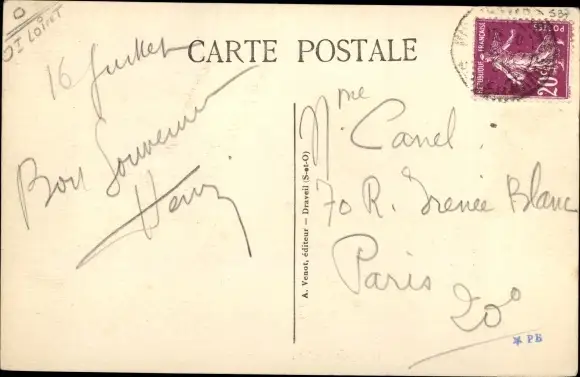 O
CARTE POSTALE
16 Juillet
Bon Souvenir
Henri
A. Venot, éditeur - Draveil (S-et-O)
Mme Canel.
70 R. Irénée Blanc
Paris
20°
REPUBLIQUE FRANÇAISE
POSTES
20c
* PB